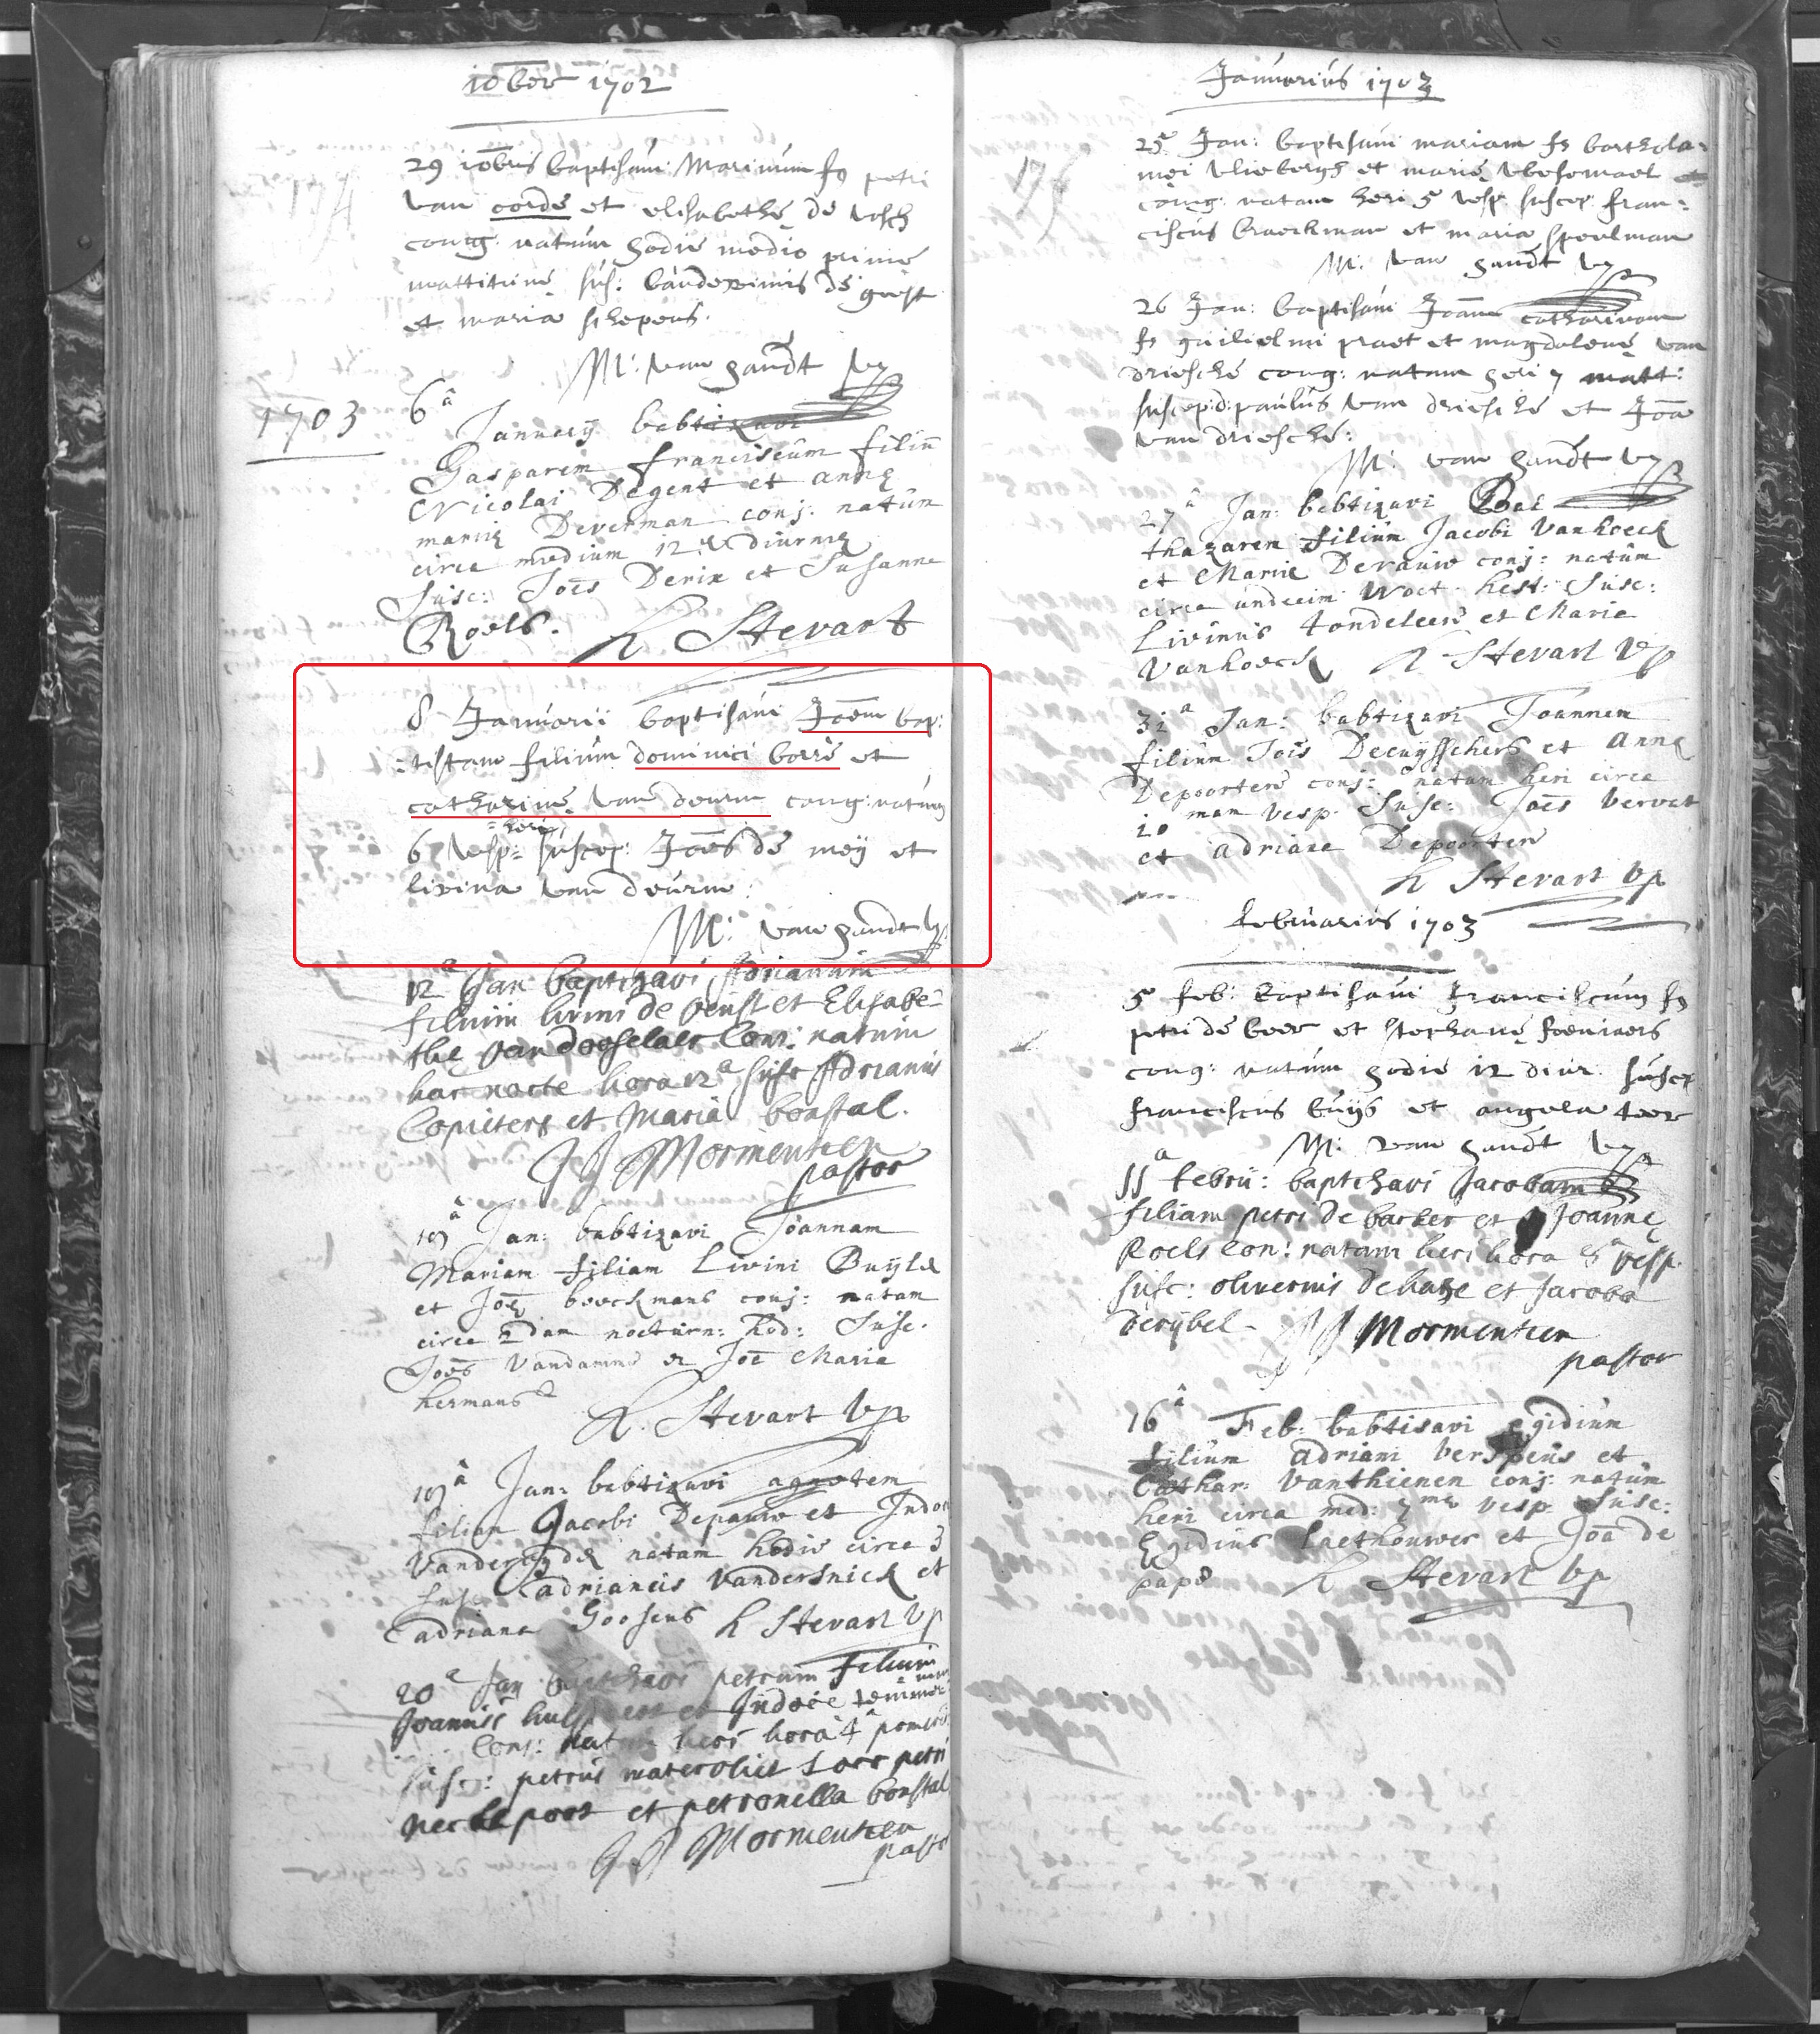 10ber 1702
29 10bris baptisavi Marinum fs petri
van corde et elisabethe de
conig: natum hodie medio prime
mattitune sus: de
et maria schepens.
M: van zandt vp
1703
6â
Januarij babtizavi
Gasparem franciscum filiu
Nicolai Degent et annę
marię Deverman conj: natum
circa medium 12 diurnę
Susc: Joēs Derix et Susanna
Roels. L Stevart
8 Januarii baptisavi Joem bap:
:tistam filium dominici borre et
catharinę van deurm conig: natum
heri
6 vesp: suscep: Joēs de meÿ et
livina van deurm:
M: van zandt vp
12a Jan baptizavi Adrianum
filium livini de et Elisabe-
thę vandooselaer Coni: natum
hac nocte hora 12a susc Adrianus
Copieters et Maria bonstal.
J J Mormentien
pastor
19â Jan: babtizavi Joannam
Mariam filiam Livini Buÿle
et Joę boeckmans conj: natam
circa 2dam nocturn: hod: Susc.
Joēs Vandamme et Joē Maria
hermans
L. Stevart vp
19â Jan: babtizavi agnetem
filiam Jacobi Depauw et
natam hodie circa 3
Susc adrianus Vandersnick et
adriana Goosens L Stevart vp
20a Jan baptizavi petrum filium
Joannis et
Coni: heri hora 4a
susc: petrus
et petronella bonstal
J J Mormentien
pastor
Januarius 1703
25 Jan: baptisavi mariam fs bartholo:
męi vliebergs et marię
conig: natam heri 5 vesp suscep: fran:
ciscus braeckman et maria speelman
M: van zandt vp
26 Jan: baptisavi Joannā catharinam
fs guilielmi praet et magdalenę van
driesche conig: natam heri 7 matt:
suscep: d: paulus van driesche et Joā
van driesche:
M: van zandt vp
27â Jan: babtizavi Bal
thazarem filium Jacobi Vanhoeck
et Marię Derauw conj: natum
circa undecim noct. hest: Susc:
Livinus Tondeleer et Maria
Vanhoeck L Stevart vp
31a Jan: babtizavi Joannen
filium Jois Decuÿsschers et Annę
Depoorter conj: natum heri circa
10 mam vesp. Susc: Joēs Vervaet
et adriane Depoorter
L Stevart vp
februarius 1703
5 feb: baptisavi franciscum fs
petri de boer et stephanę
conig: natum hodie 12 diur: suscep
franciscus buijs et angela
M: van zandt vp
11a februi: baptizavi Jacobam
filiam petri de backer et Joannę
Roels Con: natam heri hora 5a vesp.
susc: oliverius dehase et Jacoba
derijbel- J J Mormentien
pastor
16â Feb: babtisavi egidium
filium adriani Verspeiis et
Cathar: Vanthienen conj: natum
heri circa med: 7me vesp Susc:
Egidius Laethouwer et Joā de
pape L Stevart vp